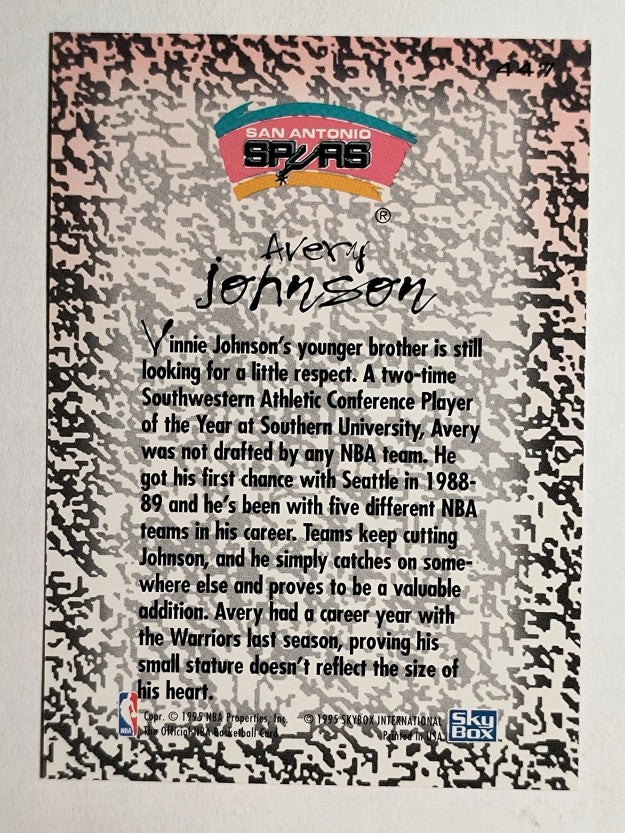 447
SAN ANTONIO
SPURS
®
Avery
johnson
Vinnie Johnson's younger brother is still
looking for a little respect. A two-time
Southwestern Athletic Conference Player
of the Year at Southern University, Avery
was not drafted by any NBA team. He
got his first chance with Seattle in 1988-
89 and he's been with five different NBA
teams in his career. Teams keep cutting
Johnson, and he simply catches on some-
where else and proves to be a valuable
addition. Avery had a career year with
the Warriors last season, proving his
small stature doesn't reflect the size of
his heart.
Copr. © 1995 NBA Properties, Inc. © 1995 SKYBOX INTERNATIONAL
The Official NBA Basketball Card Printed in USA
NBA
Sky
Box